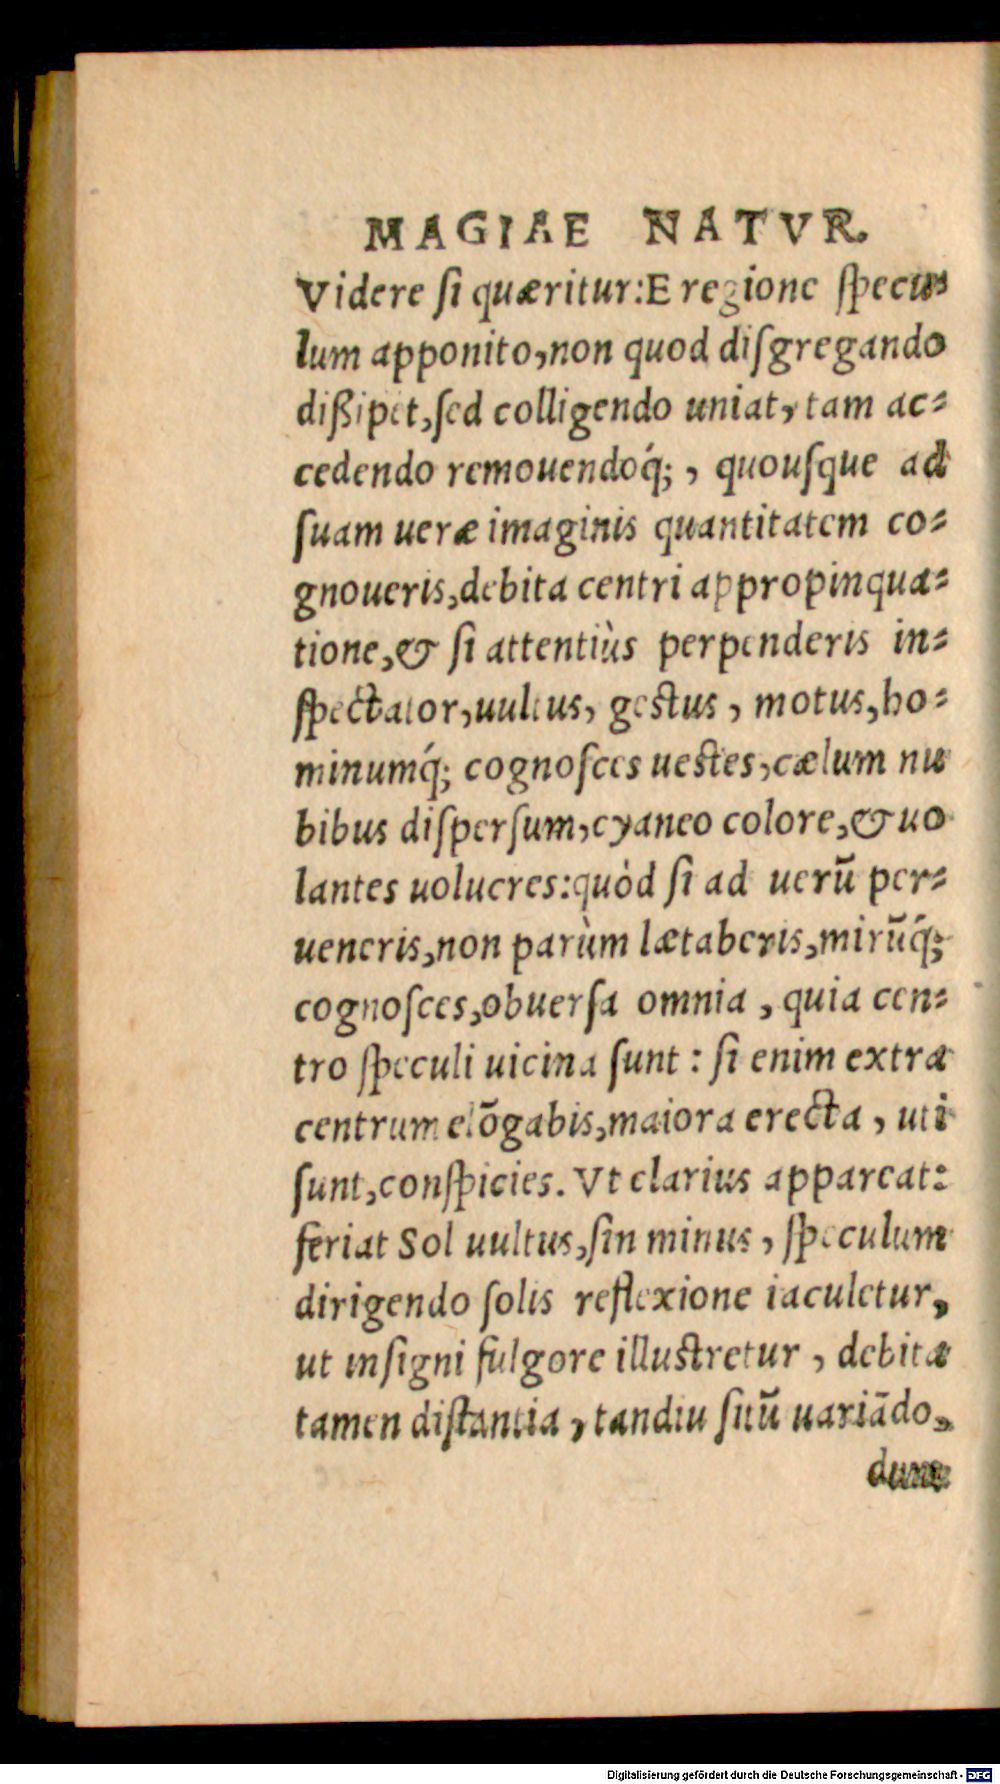 MAGIAE NATVR.
Videre ſi quæritur:E regione ſpecu⸗
lum apponito,non quod diſgregando
dißipet,ſed colligendo uniat, tam ac⸗
cedendo remouendoq́;, quouſque ad
ſuam ueræ imaginis quantitatem co⸗
gnoueris,debita centri appropinqua⸗
tione,& ſi attentiùs perpenderis in⸗
ſpectator,uultus, geſtus, motus,ho⸗
minumq́; cognoſces ueſtes,cælum nu
bibus diſperſum,cyaneo colore,& uo
lantes uolucres:quòd ſi ad uerũ per⸗
ueneris,non parùm lætaberis,mirũq́;
cognoſces,obuerſa omnia, quia cen⸗
tro ſpeculi uicina ſunt: ſi enim extra
centrum elõgabis,maiora erecta, uti
ſunt,conſpicies. Vt clarius appareat:
feriat Sol uultus,ſin minus, ſpeculum
dirigendo ſolis reflexione iaculetur,
ut inſigni fulgore illuſtretur, debita
tamen diſtantia, tandiu ſitũ uariãdo,
Digitalisierung gefördert durch die Deutsche Forschungsgemeinschaft - DFG